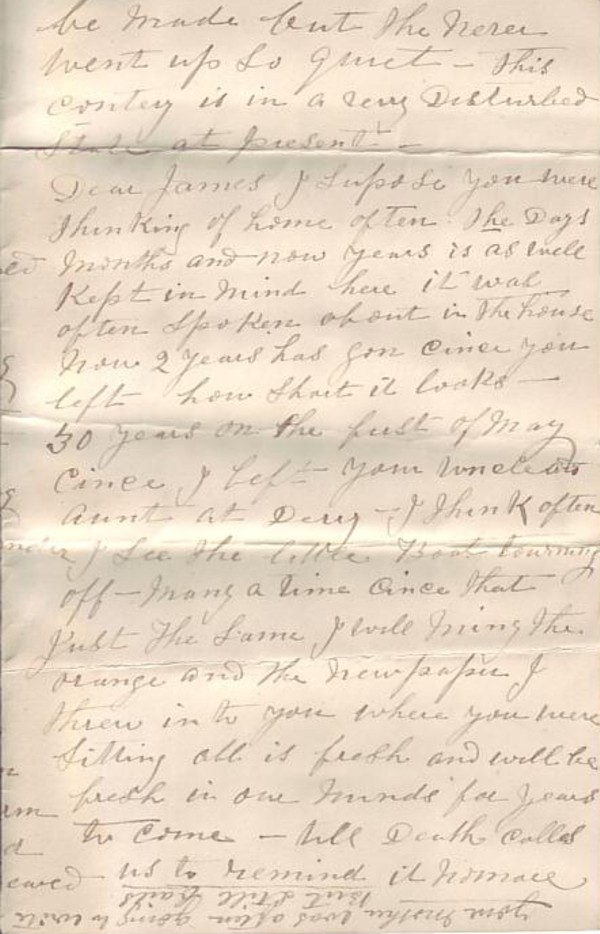 be Made but the never
went up so quiet - This
contey is in a very Disturbed
State at present -
Dear James I Supose you were
thinking of home often The Days
Months and now years is as well
Kept in Mind here it was
often Spoken about in the house
Now 2 years has gon cince you
left how Short it looks -
30 years on the first of May
Cince I left your uncle
Aunt at Derry - I think often
I See the little Boat tourning
off - Many a time Cince that
Just the Same I will Ming the
orange and the Newspaper I
threw in to you where you were
Sitting all is fresh and will be
fresh in our Minds for years
to come - till Death calls
us to remind it nomore
your Mother was often going to write
But Still fails